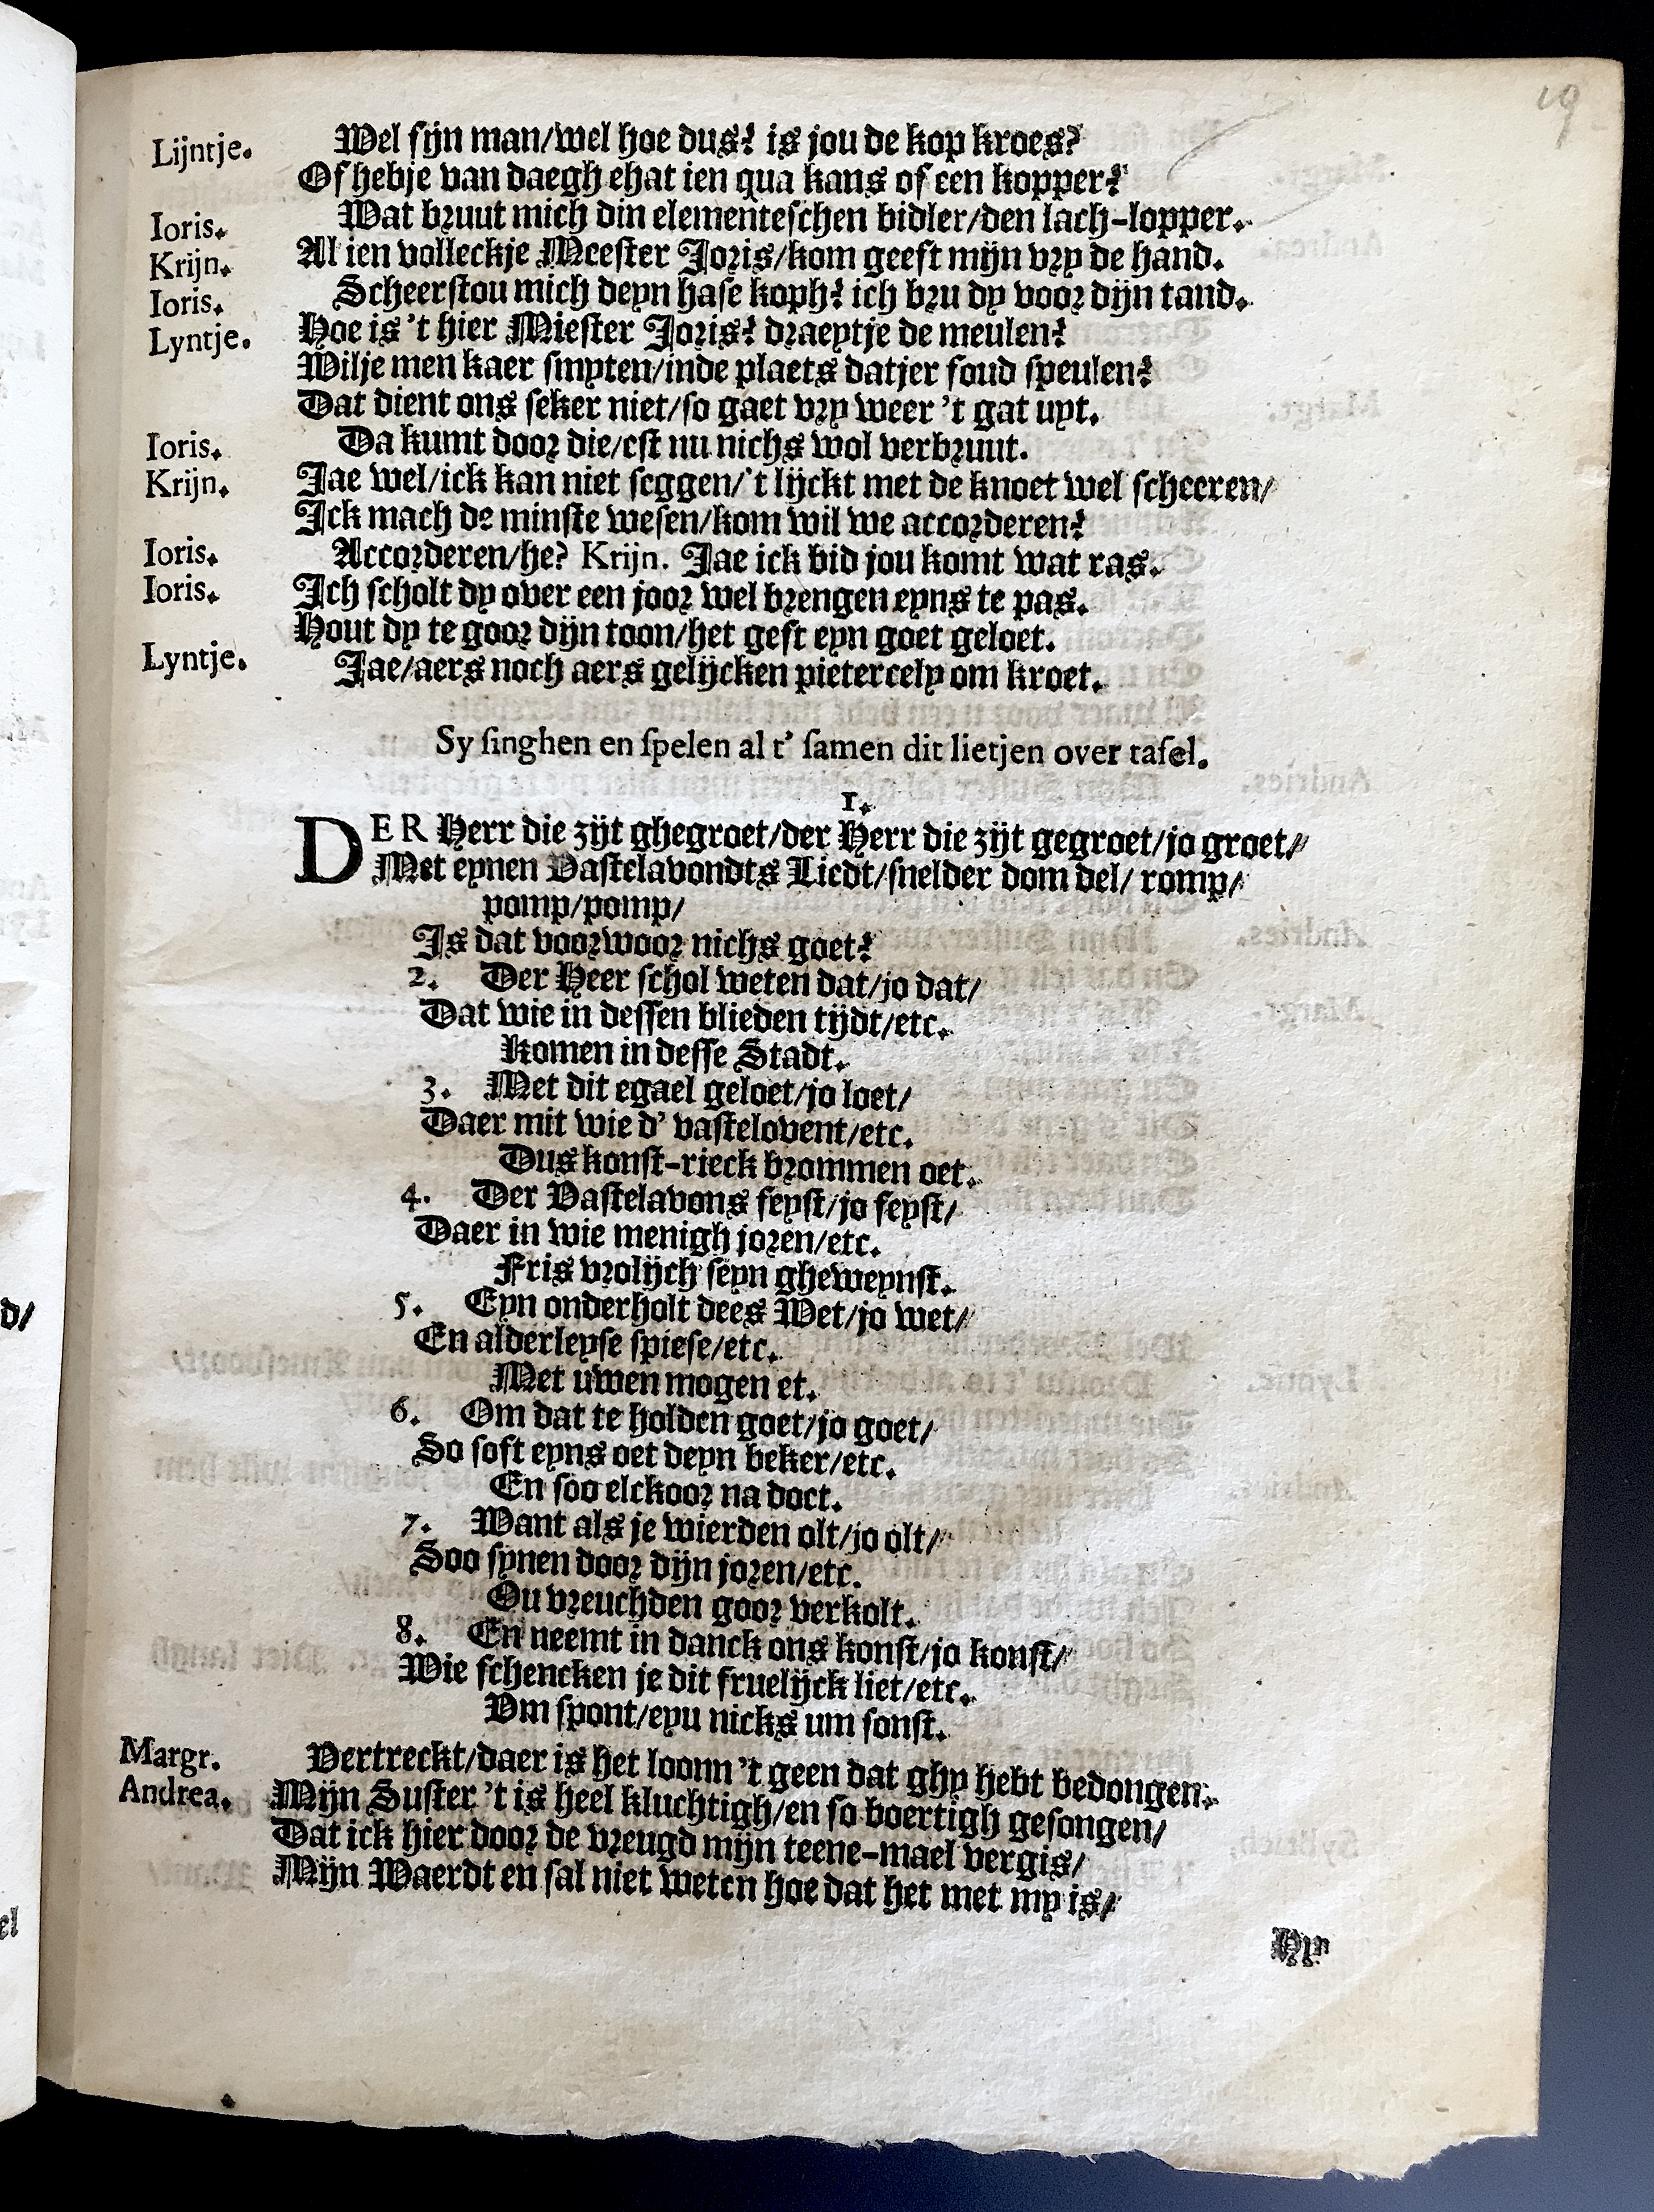 19
Lijntje. Wel sijn man/wel hoe dus? is jou de kop kroes?
Of hebje van daegh ehat ien qua kans of een kopper?
Ioris. Wat bruut mich din elementeschen bidler/den lach-lopper.
Krijn. Al ien volleckje Meester Joris/kom geeft mijn vry de hand.
Ioris. Scheerstou mich deyn hase koph? ich bru dy voor dijn tand.
Lyntje. Hoe is 't hier Miester Joris? draeytje de meulen?
Wilje men kaer smyten/inde plaets datjer soud speulen?
Dat dient ons seker niet/so gaet vry weer 't gat uyt.
Ioris. Da kumt door die/est nu nichs wol verbruut.
Krijn. Jae wel/ick kan niet seggen/'t lijckt met de knoet wel scheeren/
Ick mach de minste wesen/kom wil we accorderen?
Ioris. Accorderen/he? Krijn. Jae ick bid jou komt wat ras.
Ioris. Ich scholt dy over een joor wel brengen eyns te pas.
Hout dy te goor dijn toon/het gest eyn goet geloet.
Lyntje. Jae/aers noch aers gelijcken pietercely om kroet.
Sy singhen en spelen al t' samen dit lietjen over tafel.
1.
DER Herr die zijt ghegroet/der Herr die zijt gegroet/jo groet/
Met eynen Vastelavondts Liedt/snelder dom del/ romp/
pomp/pomp/
Is dat voorwoor nichs goet?
2. Der Heer schol weten dat/jo dat/
Dat wie in dessen blieden tijdt/etc.
Komen in desse Stadt.
3. Met dit egael geloet/jo loet/
Daer mit wie d' vastelovent/etc.
Dus konst-rieck brommen oet.
4. Der Vastelavons feyst/jo feyst/
Daer in wie menigh joren/etc.
Fris vrolijch seyn gheweynst.
5. Eyn onderholt dees Wet/jo wet/
En alderleyse spiese/etc.
Met uwen mogen et.
6. Om dat te holden goet/jo goet/
So soft eyns oet deyn beker/etc.
En soo elckoor na doet.
7. Want als je wierden olt/jo olt/
Soo synen door dijn joren/etc.
Ou vreuchden goor verkolt.
8. En neemt in danck ons konst/jo konst/
Wie schencken je dit fruelijck liet/etc.
Om spont/eyu nicks um sonst.
Margr. Vertreckt/daer is het loonn 't geen dat ghy hebt bedongen.
Andrea. Mijn Suster 't is heel kluchtigh/en so boertigh gesongen/
Dat ick hier door de vreugd mijn teene-mael vergis/
Mijn Waerdt en sal niet weten hoe dat het met my is/